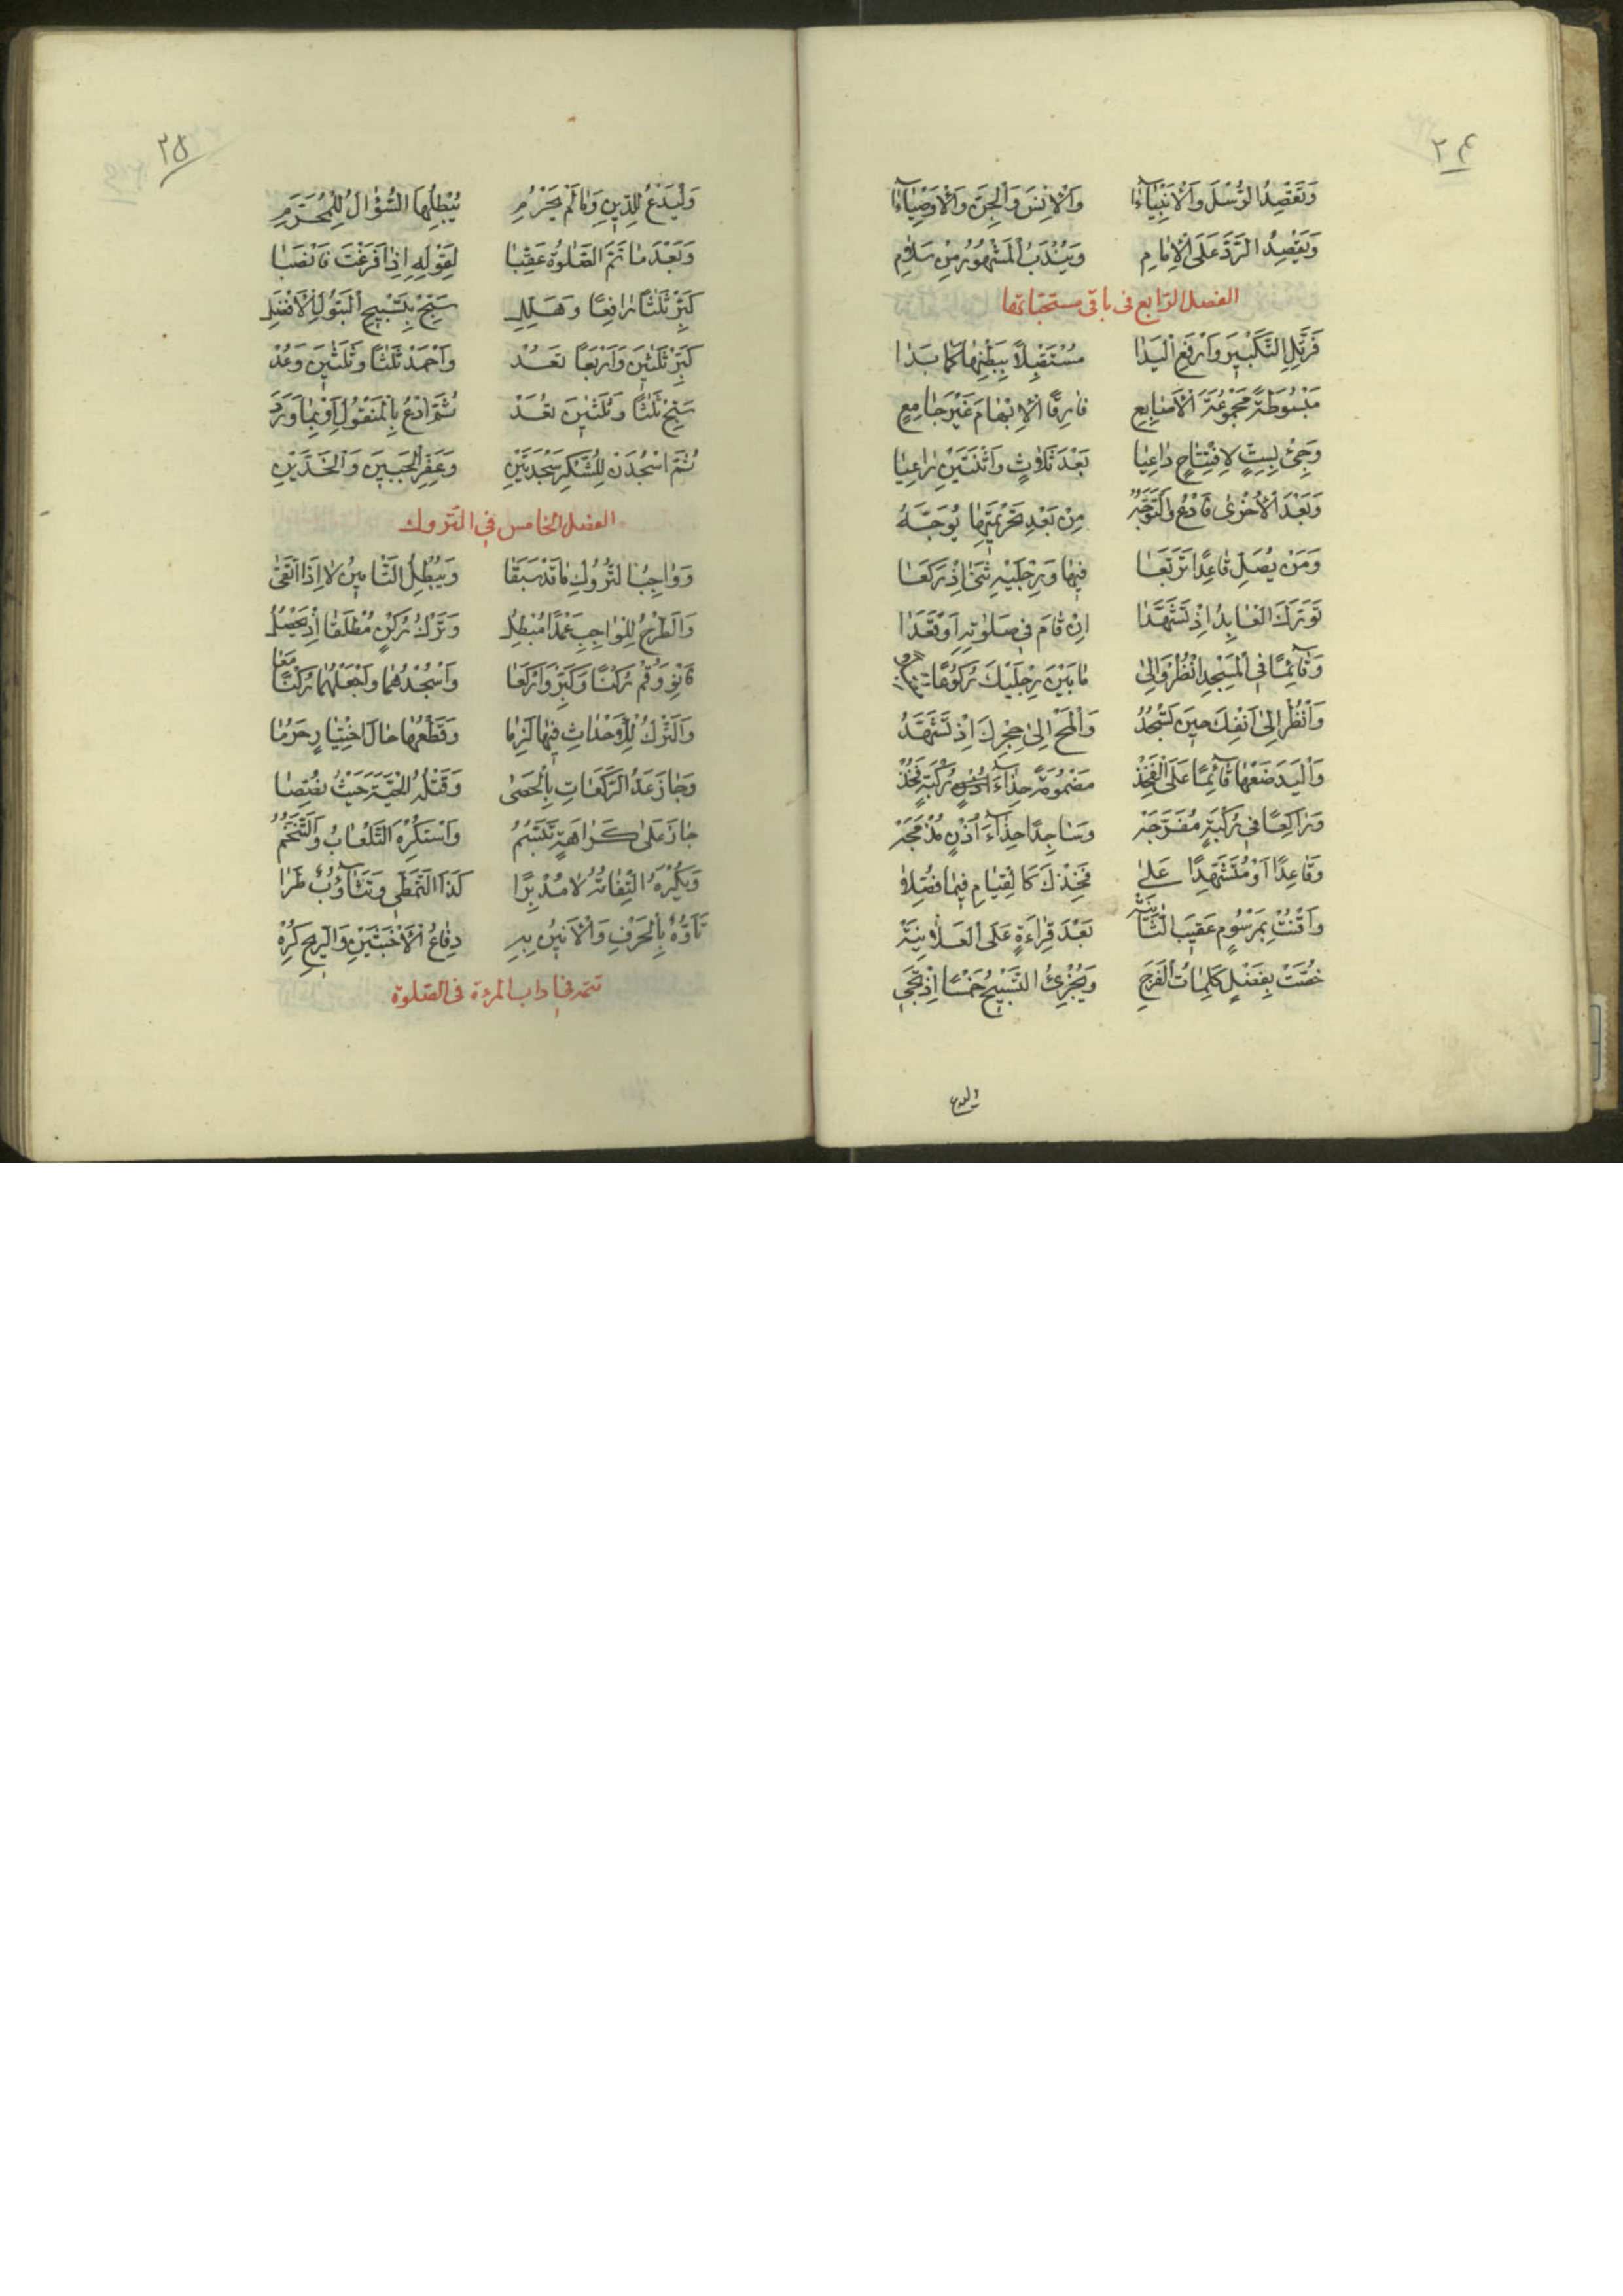 ٢۴
وَتَقْصِدُ الرُّسُلَ وَالْاَنْبِيَآءَا وَالْاِنْسَ وَالْجِنَّ وَالْاَوْصِيَآءَا
وَيَقْصِدُ الرَّدَّ عَلَى الْاِمَامِ وَيُنْدَبُ الْمَشْهُورُ مِنْ سَلَامِ
الفصل الرابع فى باقى مستحباتها
فَرَتِّلِ التَّكْبِيرَ وَارْفَعِ الْيَدَا مُسْتَقْبِلًا بِبَطْنِهَا كَمَا بَدَا
مَبْسُوطَةً مَجْمُوعَةَ الْاَصَابِعِ فَارِقًا الْاِبْهَامَ غَيْرَ جَامِعِ
وَجِئْ بِسِتٍّ لِافْتِتَاحٍ دَاعِيَا بَعْدَ ثَلَاثٍ وَاثْنَتَيْنِ رَاعِيَا
وَبَعْدَ الْاُخْرٰى فَادْعُ وَالتَّوَجُّهُ مِنْ بَعْدِ تَحْرِيمَتِهَا يُوَجَّهُ
وَمَنْ يُصَلِّ قَاعِدًا تَرَبَّعَا فِيهَا وَرِجْلَيْهِ ثَنٰى اِذْ رَكَعَا
تَوَرَّكَ الْعَابِدُ اِذْ تَشَهَّدَا اِنْ قَامَ فِى صَلٰوتِهِ اَوْ قَعَدَا
وَقَآئِمًا فِى الْمَسْجِدِ انْظُرْ وَاِلٰى مَا بَيْنَ رِجْلَيْكَ رُكُوعًا
وَانْظُرْ اِلٰى اَنْفِكَ حِينَ تَسْجُدُ وَالْمَحْ اِلٰى حِجْرِكَ اِذْ تَشَهَّدُ
وَالْيَدَ ضَعْهَا قَآئِمًا عَلَى الْفَخِذْ مَضْمُومَةً حِذَآءَ رُكْبَةٍ فَخُذْ
وَرَاكِعًا فِى رُكْبَةٍ مُفَرَّجَهْ وَسَاجِدًا حِذَآءَ اُذْنٍ مُدْمَجَهْ
وَقَاعِدًا اَوْ مُتَشَهِّدًا عَلٰى فَخِذْكَ كَالْقِيَامِ فِيمَا فُصِّلَا
وَاقْنُتْ بِمَرْسُومٍ عَقِيبَ الثَّانِيَهْ بَعْدَ قِرَاءَةٍ عَلَى الْعَلَانِيَهْ
خُصَّتْ بِفَضْلٍ كَلِمَاتُ الْفَرَجِ وَيُجْزِئُ التَّسْبِيحُ خَمْسًا اِذْ تَجِى
وليدع
٢۵
وَلْيَدْعُ لِلدِّينِ وَمَا لَمْ يَحْرُمِ يُبْطِلُهَا السُّؤَالُ لِلْمُحَرَّمِ
وَبَعْدَ مَا تَمَّ الصَّلٰوةُ عَقِّبَا لِقَوْلِهِ اِذَا فَرَغْتَ فَانْصَبَا
كَبِّرْ ثَلٰثًا رَافِعًا وَهَلِّلِ سَبِّحْ بِتَسْبِيحِ الْبَتُولِ الْاَفْضَلِ
كَبِّرْ ثَلٰثِينَ وَاَرْبَعًا تُعَدْ وَاحْمَدْ ثَلٰثًا وَثَلٰثِينَ وَعُدْ
سَبِّحْ ثَلٰثًا وَثَلٰثِينَ تُعَدْ ثُمَّ ادْعُ بِالْمَنْقُولِ اَوْ بِمَا وَرَدَ
ثُمَّ اسْجُدَنْ لِلشُّكْرِ سَجْدَتَيْنِ وَعَفِّرِ الْجَبِينَ وَالْخَدَّيْنِ
الفصل الخامس فى التروك
وَوَاجِبُ التُّرُوكِ مَا قَدْ سَبَقَا وَيُبْطِلُ التَّامِينُ لَا اِذَا اتَّقٰى
وَالطَّرْحُ لِلْوَاجِبِ عَمْدًا مُبْطِلُ وَتَرْكُ رُكْنٍ مُطْلَقًا اِذْ يَحْصُلُ
فَانْوِ وَقُمْ رُكْنًا وَكَبِّرْ وَارْكَعَا وَاسْجُدْهُمَا وَاجْعَلْهُمَا رُكْنًا مَعَا
وَالتَّرْكُ لِلْاَحْدَاثِ فِيهَا لَزِمَا وَقَطْعُهَا حَالَ اخْتِيَارٍ حَرُمَا
وَجَازَ عَدُّ الرَّكَعَاتِ بِالْحَصٰى وَقَتْلُهُ الْحَيَّةَ حَيْثُ
جَازَ عَلٰى كَرَاهَةٍ تَبَسُّمُ وَاسْتُكْرِهَ التَّلْعَابُ وَالتَّنَخُّمُ
وَيُكْرَهُ الْتِفَاتُهُ لَا مُدْبِرًا كَذَا التَّمَطِّى وَتَثَآؤُبٌ طَرَا
تَأَوُّهٌ بِالْحَرْفِ وَالْاَنِينُ بِهِ دِفَاعُ الْاَخْبَثَيْنِ وَالرِّيحِ كُرِهْ
تتمة فى اداب المرءة فى الصلوة